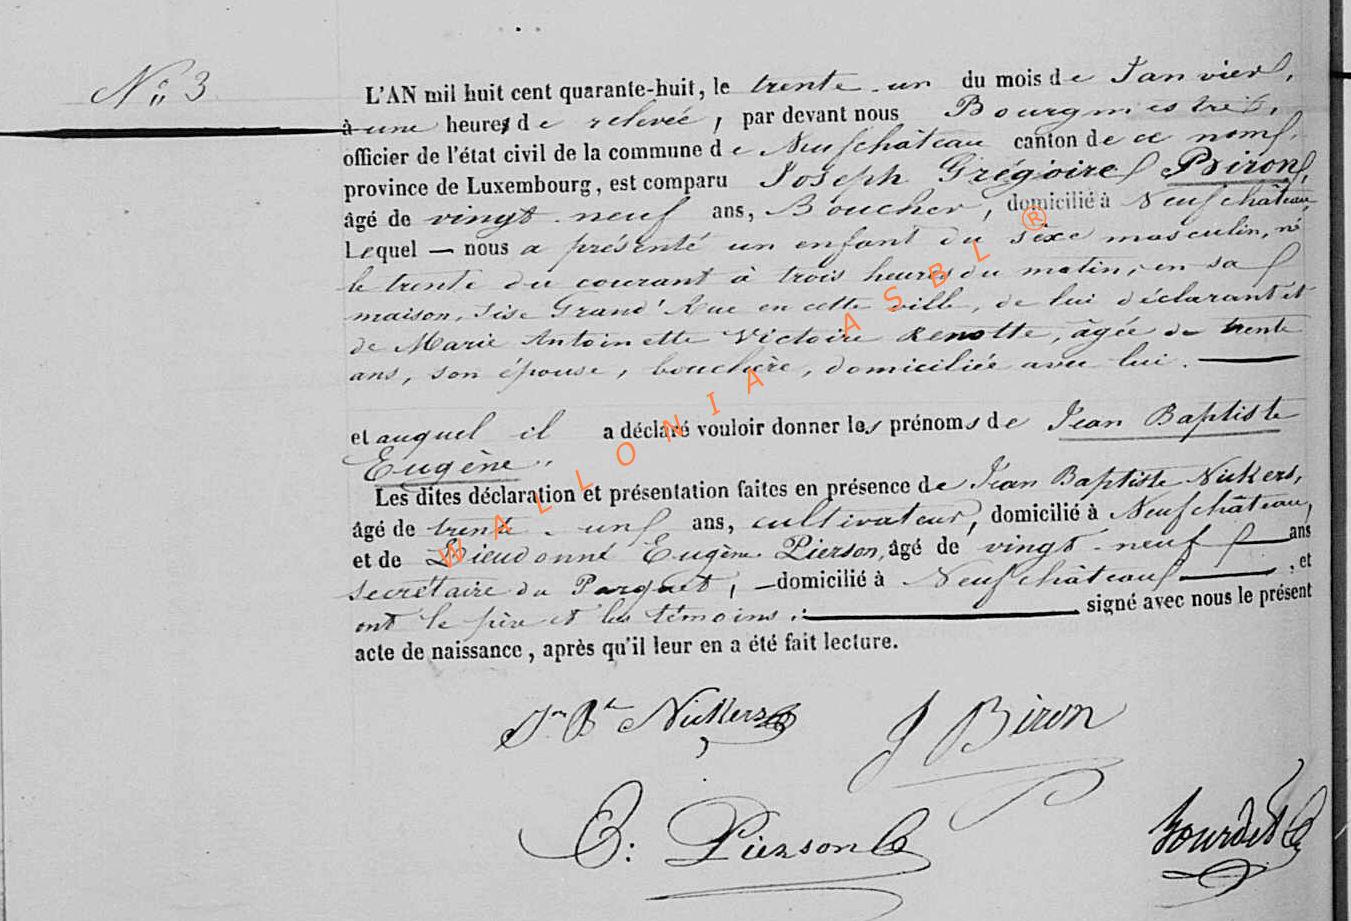 N° 3
L'AN mil huit cent quarante-huit, le trente-un du mois de Janvier,
à une heure de relevée, par devant nous Bourgmestre,
officier de l'état civil de la commune de Neufchâteau canton de ce nom,
province de Luxembourg, est comparu Joseph Grégoire Biron,
âgé de vingt-neuf ans, Boucher, domicilié à Neufchâteau,
Lequel — nous a présenté un enfant du sexe masculin, né
le trente du courant à trois heures du matin, en sa
maison, sise Grand'Rue en cette ville, de lui déclarant et
de Marie Antoinette Victoire Renotte, âgée de trente
ans, son épouse, bouchère, domiciliée avec lui. —
et auquel il a déclaré vouloir donner les prénoms de Jean Baptiste
Eugène.
Les dites déclaration et présentation faites en présence de Jean Baptiste Nickers,
âgé de trente-un ans, cultivateur, domicilié à Neufchâteau,
et de Dieudonné Eugène Pierson, âgé de vingt-neuf — ans
secrétaire du Parquet, — domicilié à Neufchâteau —, et
ont le père et les témoins, — signé avec nous le présent
acte de naissance, après qu'il leur en a été fait lecture.
Jn Bte Nickers J Biron
E: Pierson
WALLONIA ASBL ®